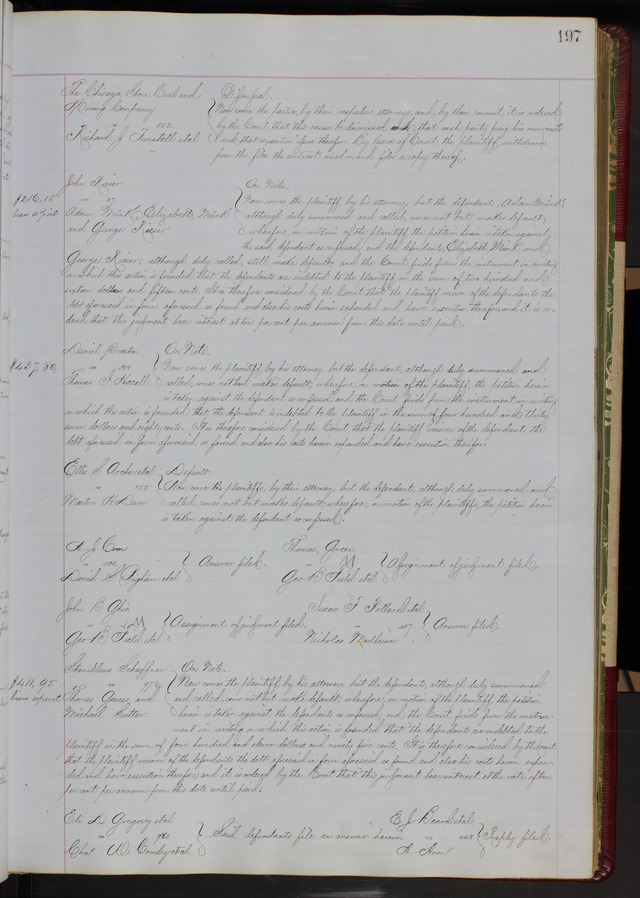 197
The Chicago Stone Coal and Dismissal.
Mining Company Now come the parties, by their respective attorneys, and, by their consent, it is ordered
by the Court that this cause be dismissed and that each party pay his own costs
Richard J et al and that execution issue therefor. By leave of Court the plaintiff withdraws
from the files the contract sued on and files a copy thereof.
John Rieser On Note.
$216,15 Now comes the plaintiff, by his attorney, but the defendant, Adam Mink,
Adam Mink, Elizabeth Mink although duly summoned and called, comes not but makes default,
and George Rieser wherefore, on motion of the plaintiff, the petition herein is taken against
the said defendant as confessed, and the defendants, Elizabeth Mink and
George Rieser, although duly called, still make default, and the Court finds from the instrument in writing
on which this action is founded that the defendants are indebted to the plaintiff in the sum of two hundred and
sixteen dollars and fifteen cents. It is therefore considered by the Court that the plaintiff recover of the defendants the
debt aforesaid in form aforesaid so found and also his costs herein expended and have execution therefor, and it is or-
dered that this judgment bear interest at ten per cent per annum from this date until paid.
Daniel On Note.
$437,80. Now comes the plaintiff, by his attorney, but the defendant, although duly summoned and
Thomas J called, comes not but makes default, wherefore, on motion of the plaintiff, the petition herein
is taken against the defendant as confessed, and the Court finds from the instrument in writing
on which the action is founded that the defendant is indebted to the plaintiff in the sum of four hundred and thirty
seven dollars and eighty cents. It is therefore considered by the Court that the plaintiff recover of the defendant the
debt aforesaid in form aforesaid so found and also his costs herein expended and have execution therefor.
Ellis S Archer et al Default.
Now come the plaintiffs, by their attorney, but the defendant, although duly summoned and
Martin called, comes not but makes default, wherefore, on motion of the plaintiffs, the petition herein
is taken against the defendant as confessed.
Answer filed. Thomas Green Assignment of judgment filed.
David S et al Geo B Field et al
John B Isaac F et al
Assignment of judgment filed. Answer filed.
Geo B Field et al Nicholas
Stanislaus Schaffner On Note.
$411,95 Now comes the plaintiff by his attorney, but the defendants, although duly summoned
Thomas and and called, come not but make default, wherefore, on motion of the plaintiff, the petition
Michael herein is taken against the defendants as confessed, and the Court finds from the instru-
ment in writing on which this action is founded that the defendants are indebted to the
plaintiff in the sum of four hundred and eleven dollars and ninety five cents. It is therefore considered by the Court
that the plaintiff recover of the defendants the debt aforesaid in form aforesaid so found and also his costs herein expen-
ded and have execution therefor, and it is ordered by the Court that this judgment bear interest at the rate of ten
per cent per annum from this date until paid.
Eli D Gregory et al E. J. et al
Said defendants file an answer herein Reply filed
Chas W Crosby et al